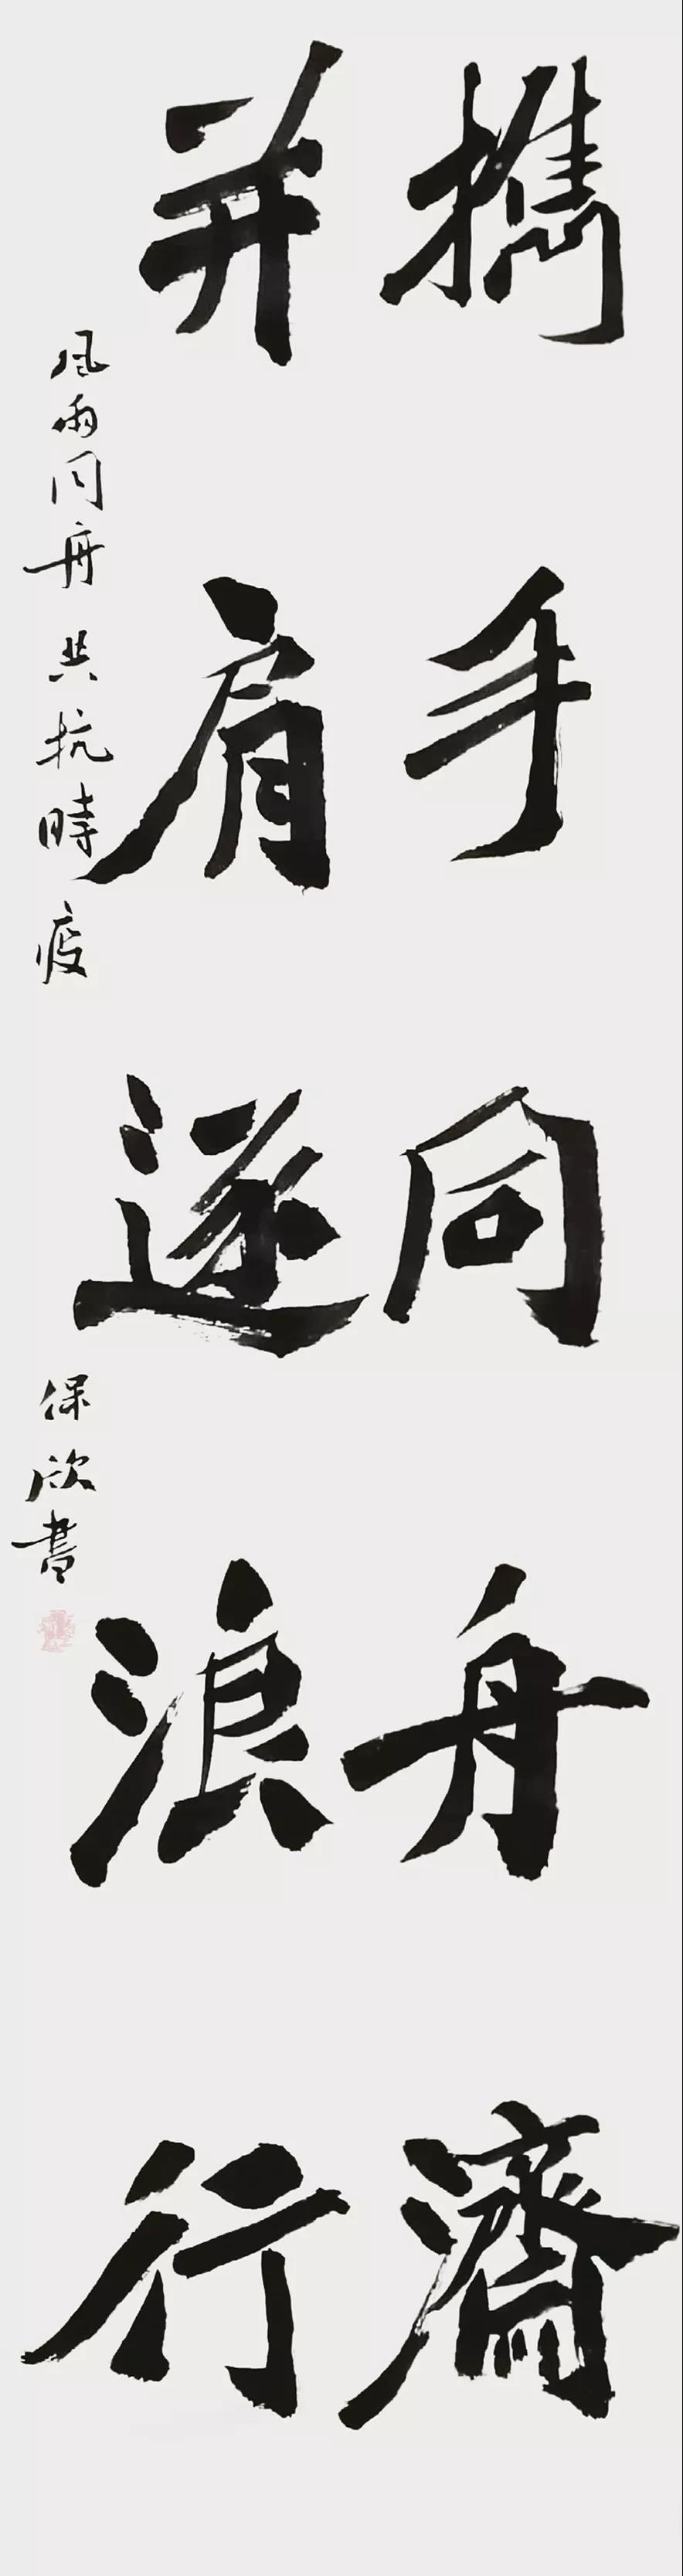 攜手同舟濟
并肩逐浪行
風雨同舟 共抗時疫
保欣書